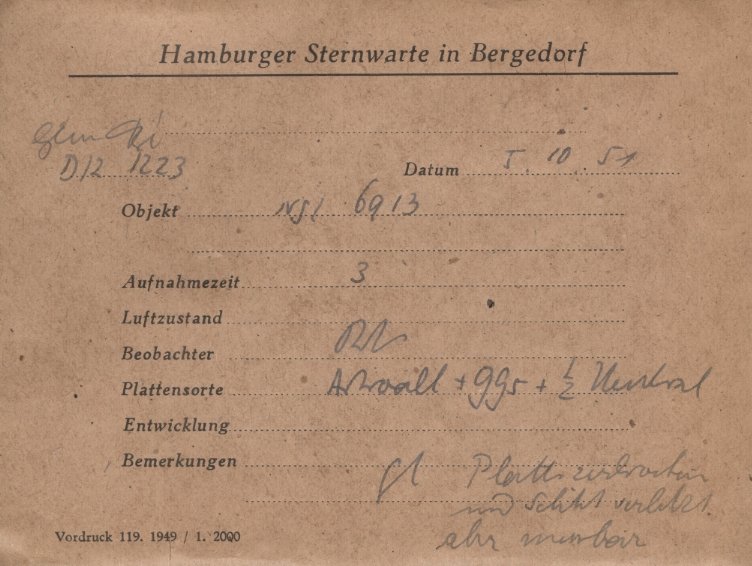 Hamburger Sternwarte in Bergedorf
D12 1223
Datum 5. 10. 51
Objekt NGC 6913
Aufnahmezeit 3
Luftzustand
Beobachter
Plattensorte + GG5 + 1/2 Neutral
Entwicklung
Bemerkungen gl Platte zerbrochen
und Schicht verletzt
aber messbar
Vordruck 119. 1949 / 1. 2000